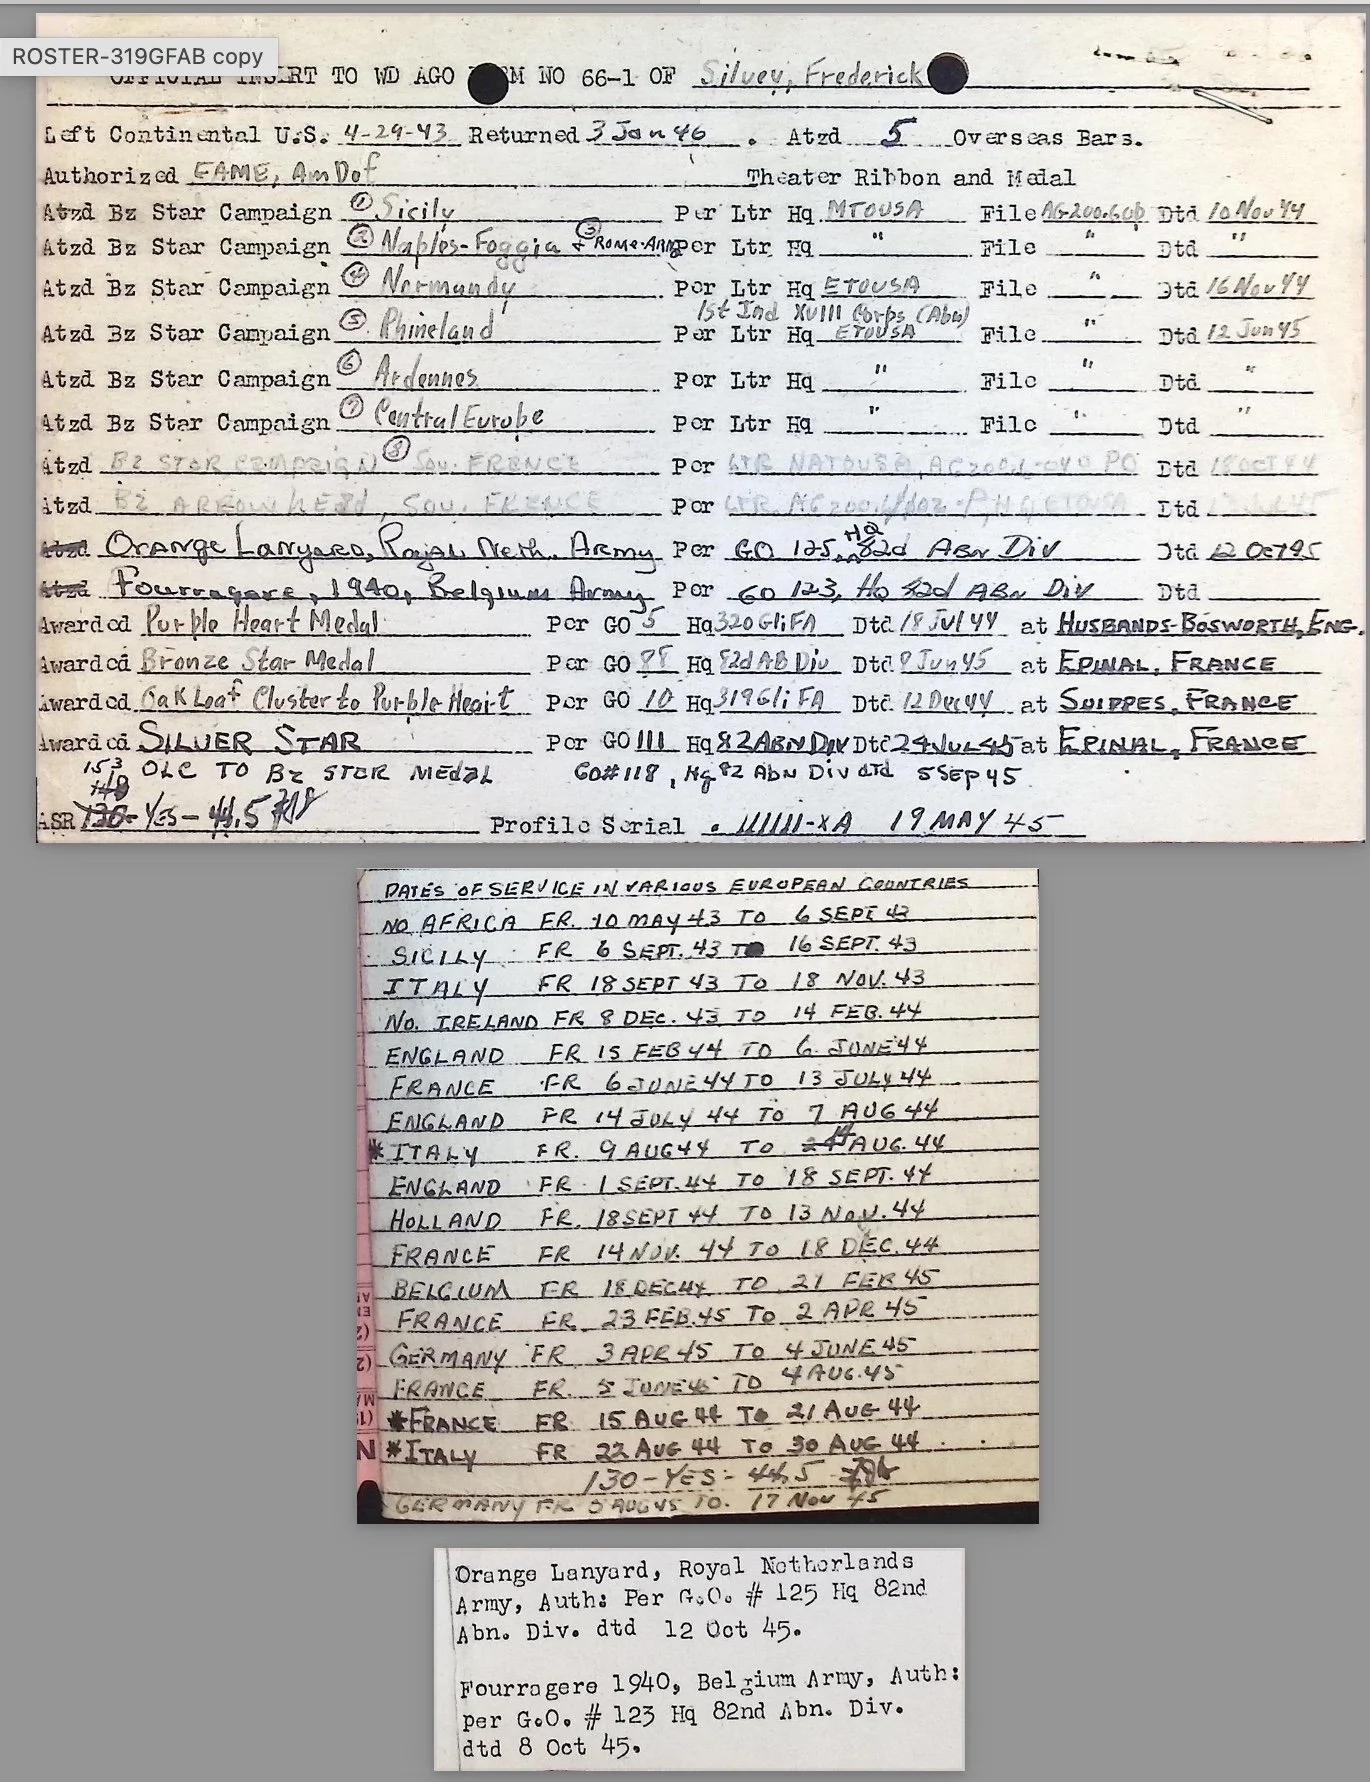 ROSTER-319GFAB copy
OFFICIAL INSERT TO WD AGO FORM NO 66-1 OF Silvey, Frederick
Left Continental U.S. 4-29-43 Returned 3 Jan 46 . Atzd 5 Overseas Bars.
Authorized EAME, Am Def Theater Ribbon and Medal
Atzd Bz Star Campaign ① Sicily Per Ltr Hq MTOUSA File Dtd 10 Nov 44
Atzd Bz Star Campaign ② Naples-Foggia + ③ ROME-ARNO Per Ltr Hq " File " Dtd "
Atzd Bz Star Campaign ④ Normandy Per Ltr Hq ETOUSA File " Dtd 16 Nov 44
1st Ind XVIII Corps (Abn)
Atzd Bz Star Campaign ⑤ Rhineland Per Ltr Hq ETOUSA File " Dtd 12 Jun 45
Atzd Bz Star Campaign ⑥ Ardennes Per Ltr Hq " File " Dtd "
Atzd Bz Star Campaign ⑦ Central Europe Per Ltr Hq " File " Dtd "
Atzd Bz STAR CAMPAIGN ⑧ SOU. FRANCE Per LTR NATOUSA, Dtd 18 OCT 44
Atzd Bz ARROWHEAD, SOU. FRANCE Per LTR Dtd
Atzd ORANGE LANYARD, ROYAL NETH. ARMY Per GO 125, HQ 82d ABN DIV Dtd 12 OCT 45
Atzd FOURRAGERE, 1940, BELGIUM ARMY Per GO 123, HQ 82d ABN DIV Dtd
Awarded Purple Heart Medal Per GO 5 Hq 320 Gli FA Dtd 18 Jul 44 at HUSBANDS-BOSWORTH, ENG.
Awarded Bronze Star Medal Per GO 88 Hq 82d AB Div Dtd 9 Jun 45 at EPINAL, FRANCE
Awarded Oak Leaf Cluster to Purple Heart Per GO 10 Hq 319 Gli FA Dtd 12 Dec 44 at SUIPPES, FRANCE
Awarded SILVER STAR Per GO 111 Hq 82 ABN DIV Dtd 24 JUL 45 at EPINAL, FRANCE
153 OLC TO Bz STAR MEDAL GO# 118, Hq 82 Abn Div dtd 5 SEP 45
ASR 130 - YES - 44.5 Profile Serial . 111111-XA 19 MAY 45
DATES OF SERVICE IN VARIOUS EUROPEAN COUNTRIES
NO AFRICA FR. 10 MAY 43 TO 6 SEPT 43
SICILY FR 6 SEPT. 43 TO 16 SEPT. 43
ITALY FR 18 SEPT 43 TO 18 NOV. 43
NO. IRELAND FR 8 DEC. 43 TO 14 FEB. 44
ENGLAND FR 15 FEB 44 TO 6 JUNE 44
FRANCE FR 6 JUNE 44 TO 13 JULY 44
ENGLAND FR 14 JULY 44 TO 7 AUG 44
*ITALY FR. 9 AUG 44 TO 14 AUG. 44
ENGLAND FR 1 SEPT. 44 TO 18 SEPT. 44
HOLLAND FR. 18 SEPT 44 TO 13 NOV. 44
FRANCE FR 14 NOV. 44 TO 18 DEC. 44
BELGIUM FR 18 DEC 44 TO 21 FEB 45
FRANCE FR. 23 FEB. 45 TO 2 APR 45
GERMANY FR 3 APR 45 TO 4 JUNE 45
FRANCE FR. 5 JUNE 45 TO 4 AUG. 45
*FRANCE FR 15 AUG 44 TO 21 AUG 44
*ITALY FR 22 AUG 44 TO 30 AUG 44
130 - YES - 44.5
GERMANY FR 5 AUG 45 TO. 17 NOV 45
Orange Lanyard, Royal Netherlands
Army, Auth: Per G.O. # 125 Hq 82nd
Abn. Div. dtd 12 Oct 45.
Fourragere 1940, Belgium Army, Auth:
per G.O. # 123 Hq 82nd Abn. Div.
dtd 8 Oct 45.